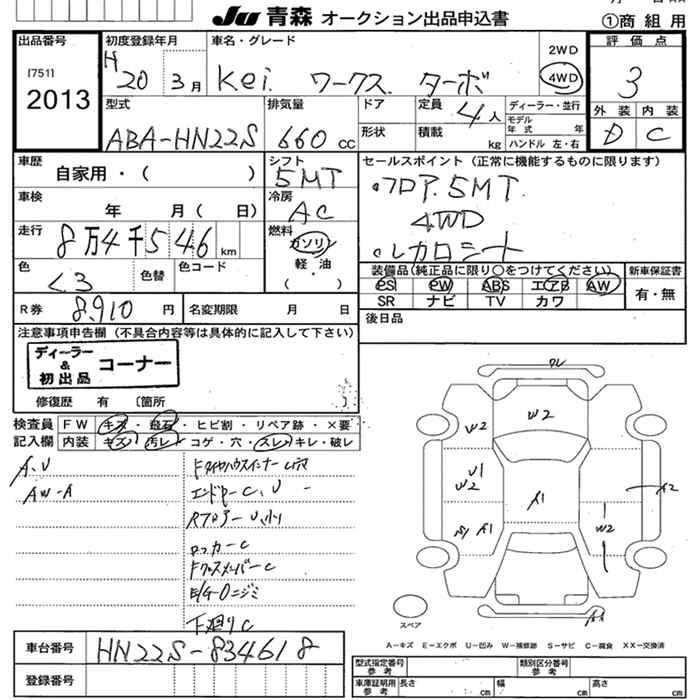 Ju 青森 オークション出品申込書
①商組用
出品番号
[751]
2013
初度登録年月
H
20 3月
車名・グレード
Kei ワークス ターボ
2WD
4WD
評価点
3
外装 内装
D C
型式
ABA-HN22S
排気量
660 cc
ドア
形状
定員
4人
積載
kg
ディーラー・並行
モデル年式 年
ハンドル 左・右
車歴
自家用・( )
シフト
5MT
セールスポイント(正常に機能するものに限ります)
フロア.5MT
4WD
レカロシート
車検
年 月( 日)
冷房
AC
走行
8万4千546km
燃料
ガソリン
軽・油
( ・ )
色
くろ
色替
色コード
装備品(純品に限り○をつけてください)
PS PW ABS エアB AW
SR ナビ TV カワ
新車保証書
有・無
R券
8.910 円
名変期限 月 日
後日品
注意事項申告欄(不具合内容等は具体的に記入して下さい)
ディーラー
&
初出品
コーナー
修復歴 有 〔箇所 〕
検査員
記入欄
FW キズ・飛石・ヒビ割・リペア跡・×要
内装 キズ・汚レ・コゲ・穴・スレ・キレ・破レ
A.U
AW-A
エンドマーC、U
ロッカーC
FクロスメンバーC
E/G-Oニジミ
下廻りC
W2
W2
U1
W2
A1
A1
A2
W2
スペア
A-キズ E-エクボ U-凹み W-補修跡 S-サビ C-腐食 XX-交換済
車台番号
HN22S-834618
登録番号
型式指定番号
参考
類別区分番号
参考
車庫証明用
参考
長さ cm
幅 cm
高さ cm